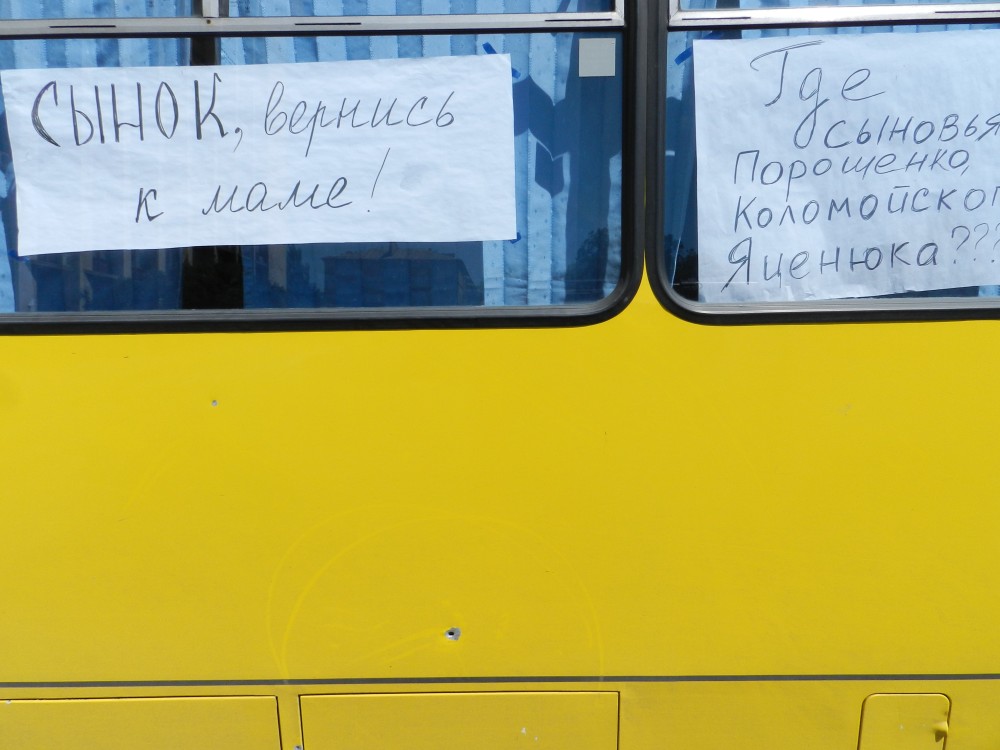 СЫНОК, вернись
к маме!
Где
сыновья
Порошенко,
Коломойског
Яценюка???